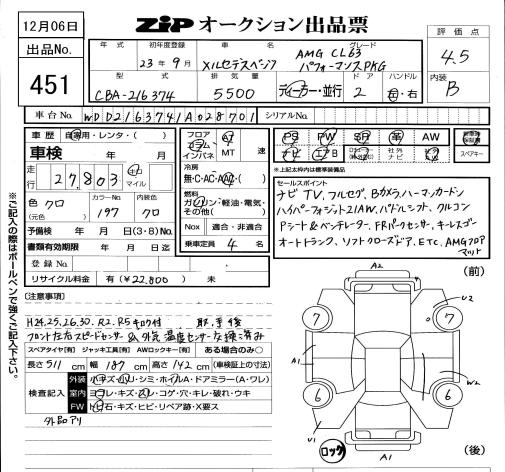 12月06日
出品No.
451
ZIPオークション出品票
評価点
4.5
内装
B
年式 初年度登録 車名 グレード
23年9月 メルセデスベンツ AMG CL63
パフォーマンスPKG
型式 排気量 ドア ハンドル
CBA-216374 5500 ディーラー・並行 2 左・右
車台No. WDD2163741A028701 シリアルNo.
車歴 自家用・レンタ・( )
車検 年 月
走行 27,803 キロ マイル
色 クロ カラーNo. 197 内装色 クロ
(元色)
予備検 年 月 日(3・8・0)
書類有効期限 年 月 日
登録No.
リサイクル料金 有(¥22,800) 未
フロア コラム インパネ AT MT 速
冷房
無・C・AC・AAC・( )
燃料
ガソリン・軽油・電気・
その他( )
Nox 適合・非適合
乗車定員 4 名
PS PW SR 革 AW 新車時保証書
ナビ エアB 社外ナビ 社外 スペアキー
※上記太枠内は標準装備品
セールスポイント
ナビ TV、フルセグ、Bカメラ、ハーマンカードン
ハイパーフォジット21AW、パドルシフト、クルコン
Pシート&ベンチレーター、FRパークセンサー、キーレスゴー
オートトランク、ソフトクローズドア、ETC、AMGフロア
マット
[注意事項]
H24.25.26.30.R2.R5キロク付 取、手、後
フロント左右スピードセンサー&外気温度センサー交換済み
スペアタイヤ[有] ジャッキ工具[有] AWロックキー[有] ある場合のみ○
長さ511cm 幅187cm 高さ142cm (車検証上の寸法)
検査記入
外装 小キズ・凹・シミ・ホイルA・ドアミラー(A・ワレ)
室内 ヨゴレ・キズ・スレ・コゲ・穴・キレ・破れ・ウキ
FW トビ石・キズ・ヒビ・リペア跡・X要ス
外品アリ
※ご記入の際はボールペンで強くご記入下さい。
(前)
A2
U2
7
7
A1
W2
6
6
U1
A1
ロック
(後)